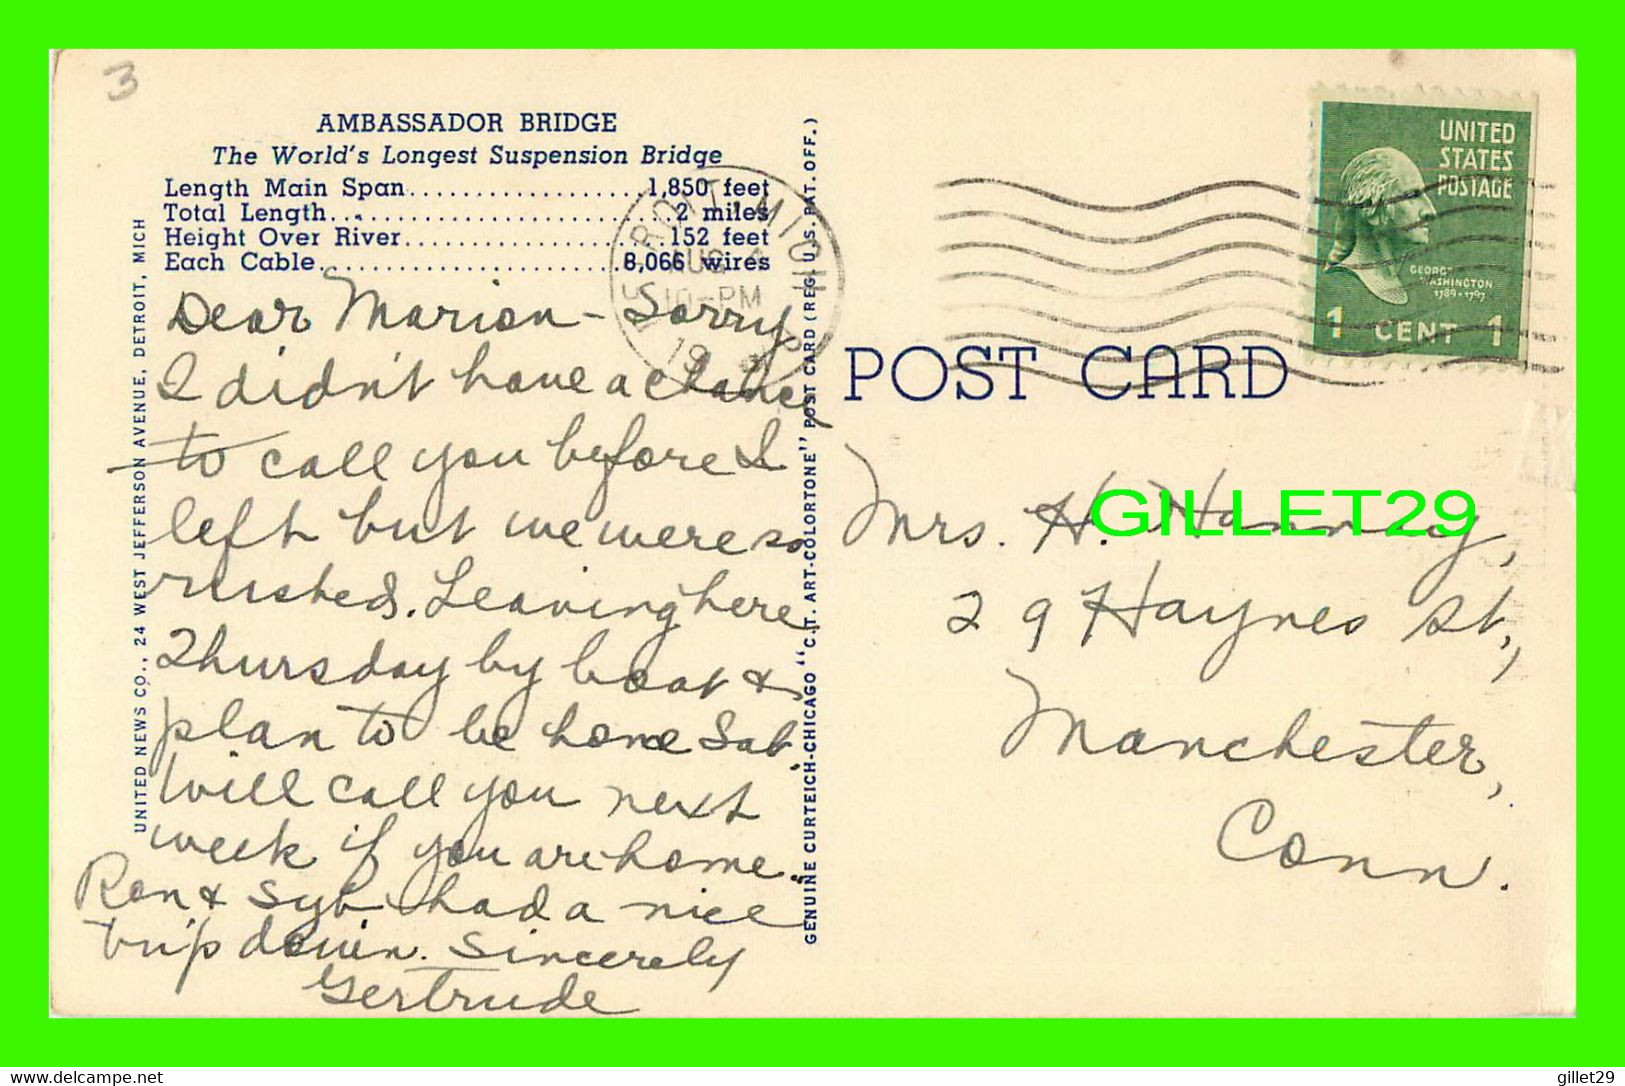 3
AMBASSADOR BRIDGE
The World's Longest Suspension Bridge
Length Main Span......................1,850 feet
Total Length..............................2 miles
Height Over River.......................152 feet
Each Cable............................8,066 wires
Dear Marion - Sorry
I didn't have a chance
to call you before I
left but we were so
rushed. Leaving here
Thursday by boat &
plan to be home Sat.
Will call you next
week if you are home.
Ron & Syb had a nice
trip down. Sincerely
Gertrude
UNITED NEWS CO., 24 WEST JEFFERSON AVENUE, DETROIT, MICH
GENUINE CURTEICH-CHICAGO "C.T. ART-COLORTONE" POST CARD (REG. U.S. PAT. OFF.)
DETROIT, MICH
AUG
10-PM
19
POST CARD
UNITED
STATES
POSTAGE
GEORGE
WASHINGTON
1789-1797
1 CENT 1
Mrs. H. Hanney,
29 Haynes St.,
Manchester,
Conn.
GILLET29
www.delcampe.net
gillet29